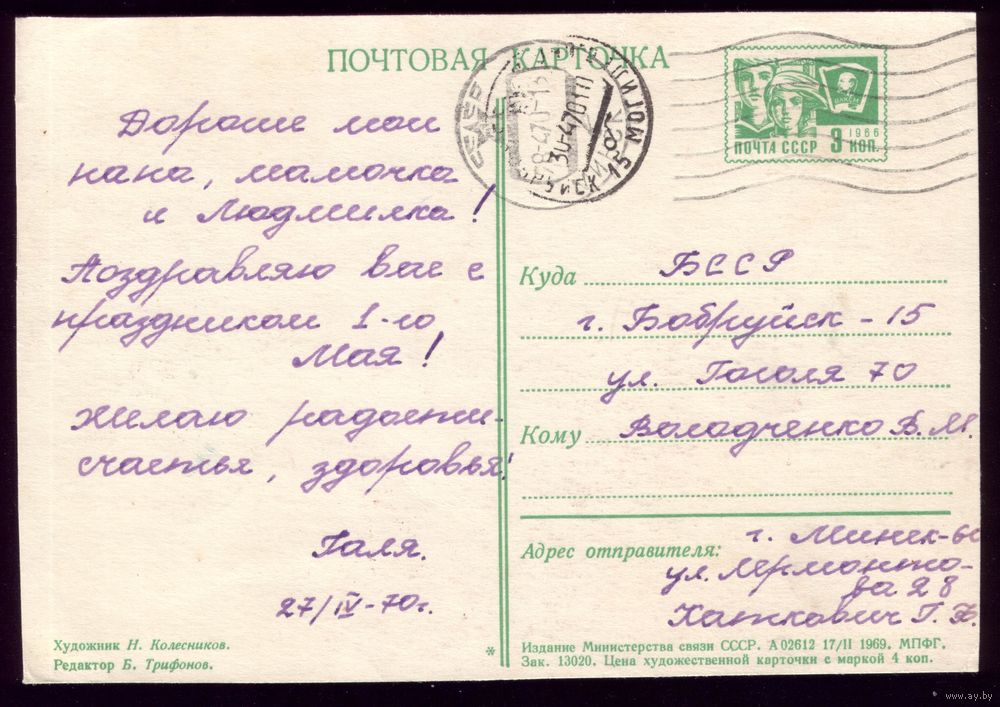 ПОЧТОВАЯ КАРТОЧКА
Дорогие мои
папа, мамочка
и Людмилка!
Поздравляю вас с
праздником 1-го
Мая!
Желаю радости-
счастья, здоровья!
Галя.
27/IV-70г.
Художник Н. Колесников.
Редактор Б. Трифонов.
*
1966
ПОЧТА СССР 3 КОП.
ВЛКСМ
Куда БССР
г. Бобруйск - 15
ул. Гоголя 70
Кому Володченко В. М.
Адрес отправителя: г. Минск-
ул. Лермонто-
ва 28
Хаткович Г.
Издание Министерства связи СССР. А 02612 17/II 1969. МПФГ.
Зак. 13020. Цена художественной карточки с маркой 4 коп.
www.ay.by